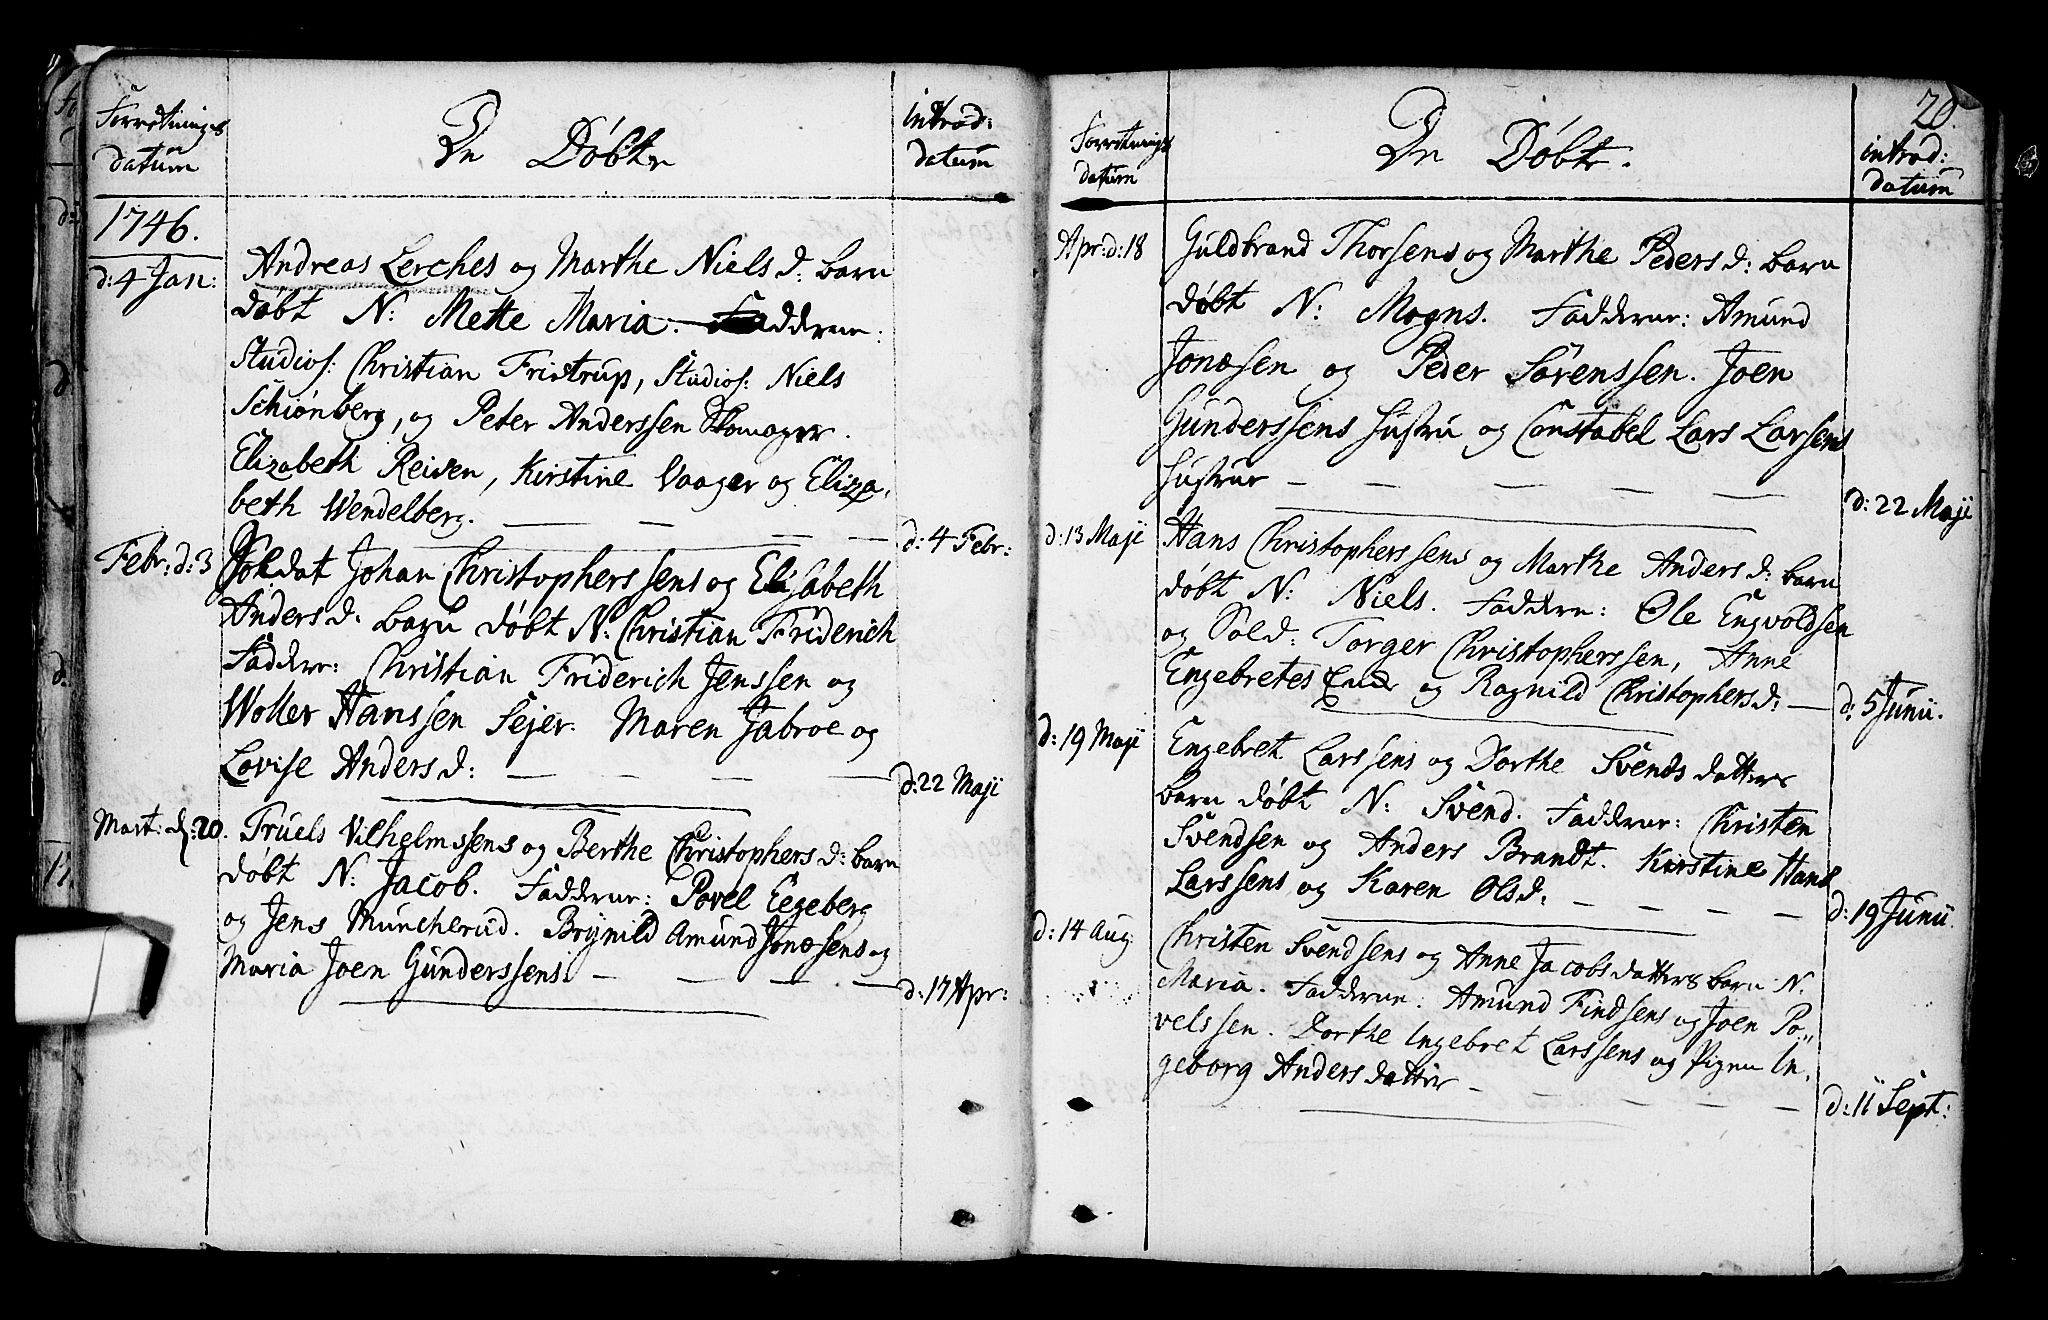 Forretnings
datum
De Døbte
introd:
datum
1746.
d: 4 Jan:
Andreas Lerches og Marthe Niels d: barn
døbt N: Mette Maria. Fadderne:
Studios: Christian Fristrup, Studios: Niels
Schiønberg, og Peter Anderssen Skomager.
Elizabeth Reisen, Kirstine Vaager og Eliza,
beth Wendelberg.
d: 4 Febr:
Febr: d: 3
Soldat Johan Christopherssens og Elisabeth
Anders d: barn døbt N: Christian Friderich
Faddere: Christian Friderich Jenssen og
Woller Hanssen Sejer. Maren Fabroe og
Lovise Anders d:
d: 22 Maji
Mart: d: 20.
Truels Vilhelmssens og Berthe Christophers d: barn
døbt N: Jacob. Fadderne: Povel Egeberg
og Jens Muncherud. Brynild Amund Jonæsens og
Maria Joen Gunderssens.
d: 17 Apr:
20.
Forretnings
datum
De Døbte.
introd:
datum
Apr: d: 18
Guldbrand Thorsens og Marthe Peders d: barn
døbt N: Mogns. Fadderne: Amund
Jonæsen og Peder Sørenssen. Joen
Gunderssens Hustru og Constabel Lars Larsens
Hustrue
d: 22 Maji
d: 13 Maji
Hans Christopherssens og Marthe Anders d: barn
døbt N: Niels. Faddere: Ole Engvoldsen
og Sold: Torger Christopherssen, Anne
Engebretes og Ragnild Christophers d:
d: 5 Junii.
d: 19 Maji
Engebret Larssens og Dorthe Svends datters
barn døbt N: Svend. Fadderne: Christen
Svendsen og Anders Brandt. Kirstine Hans
Larssens og Karen Olsd.
d: 19 Junii.
d: 14 Aug:
Christen Svendsens og Anne Jacobs datters barn N.
Maria. Fadderne: Amund Findsens og Joen Po„
velssen. Dorthe Ingebret Larssens og Pigen In,
geborg Anders datter
d: 11 Sept: